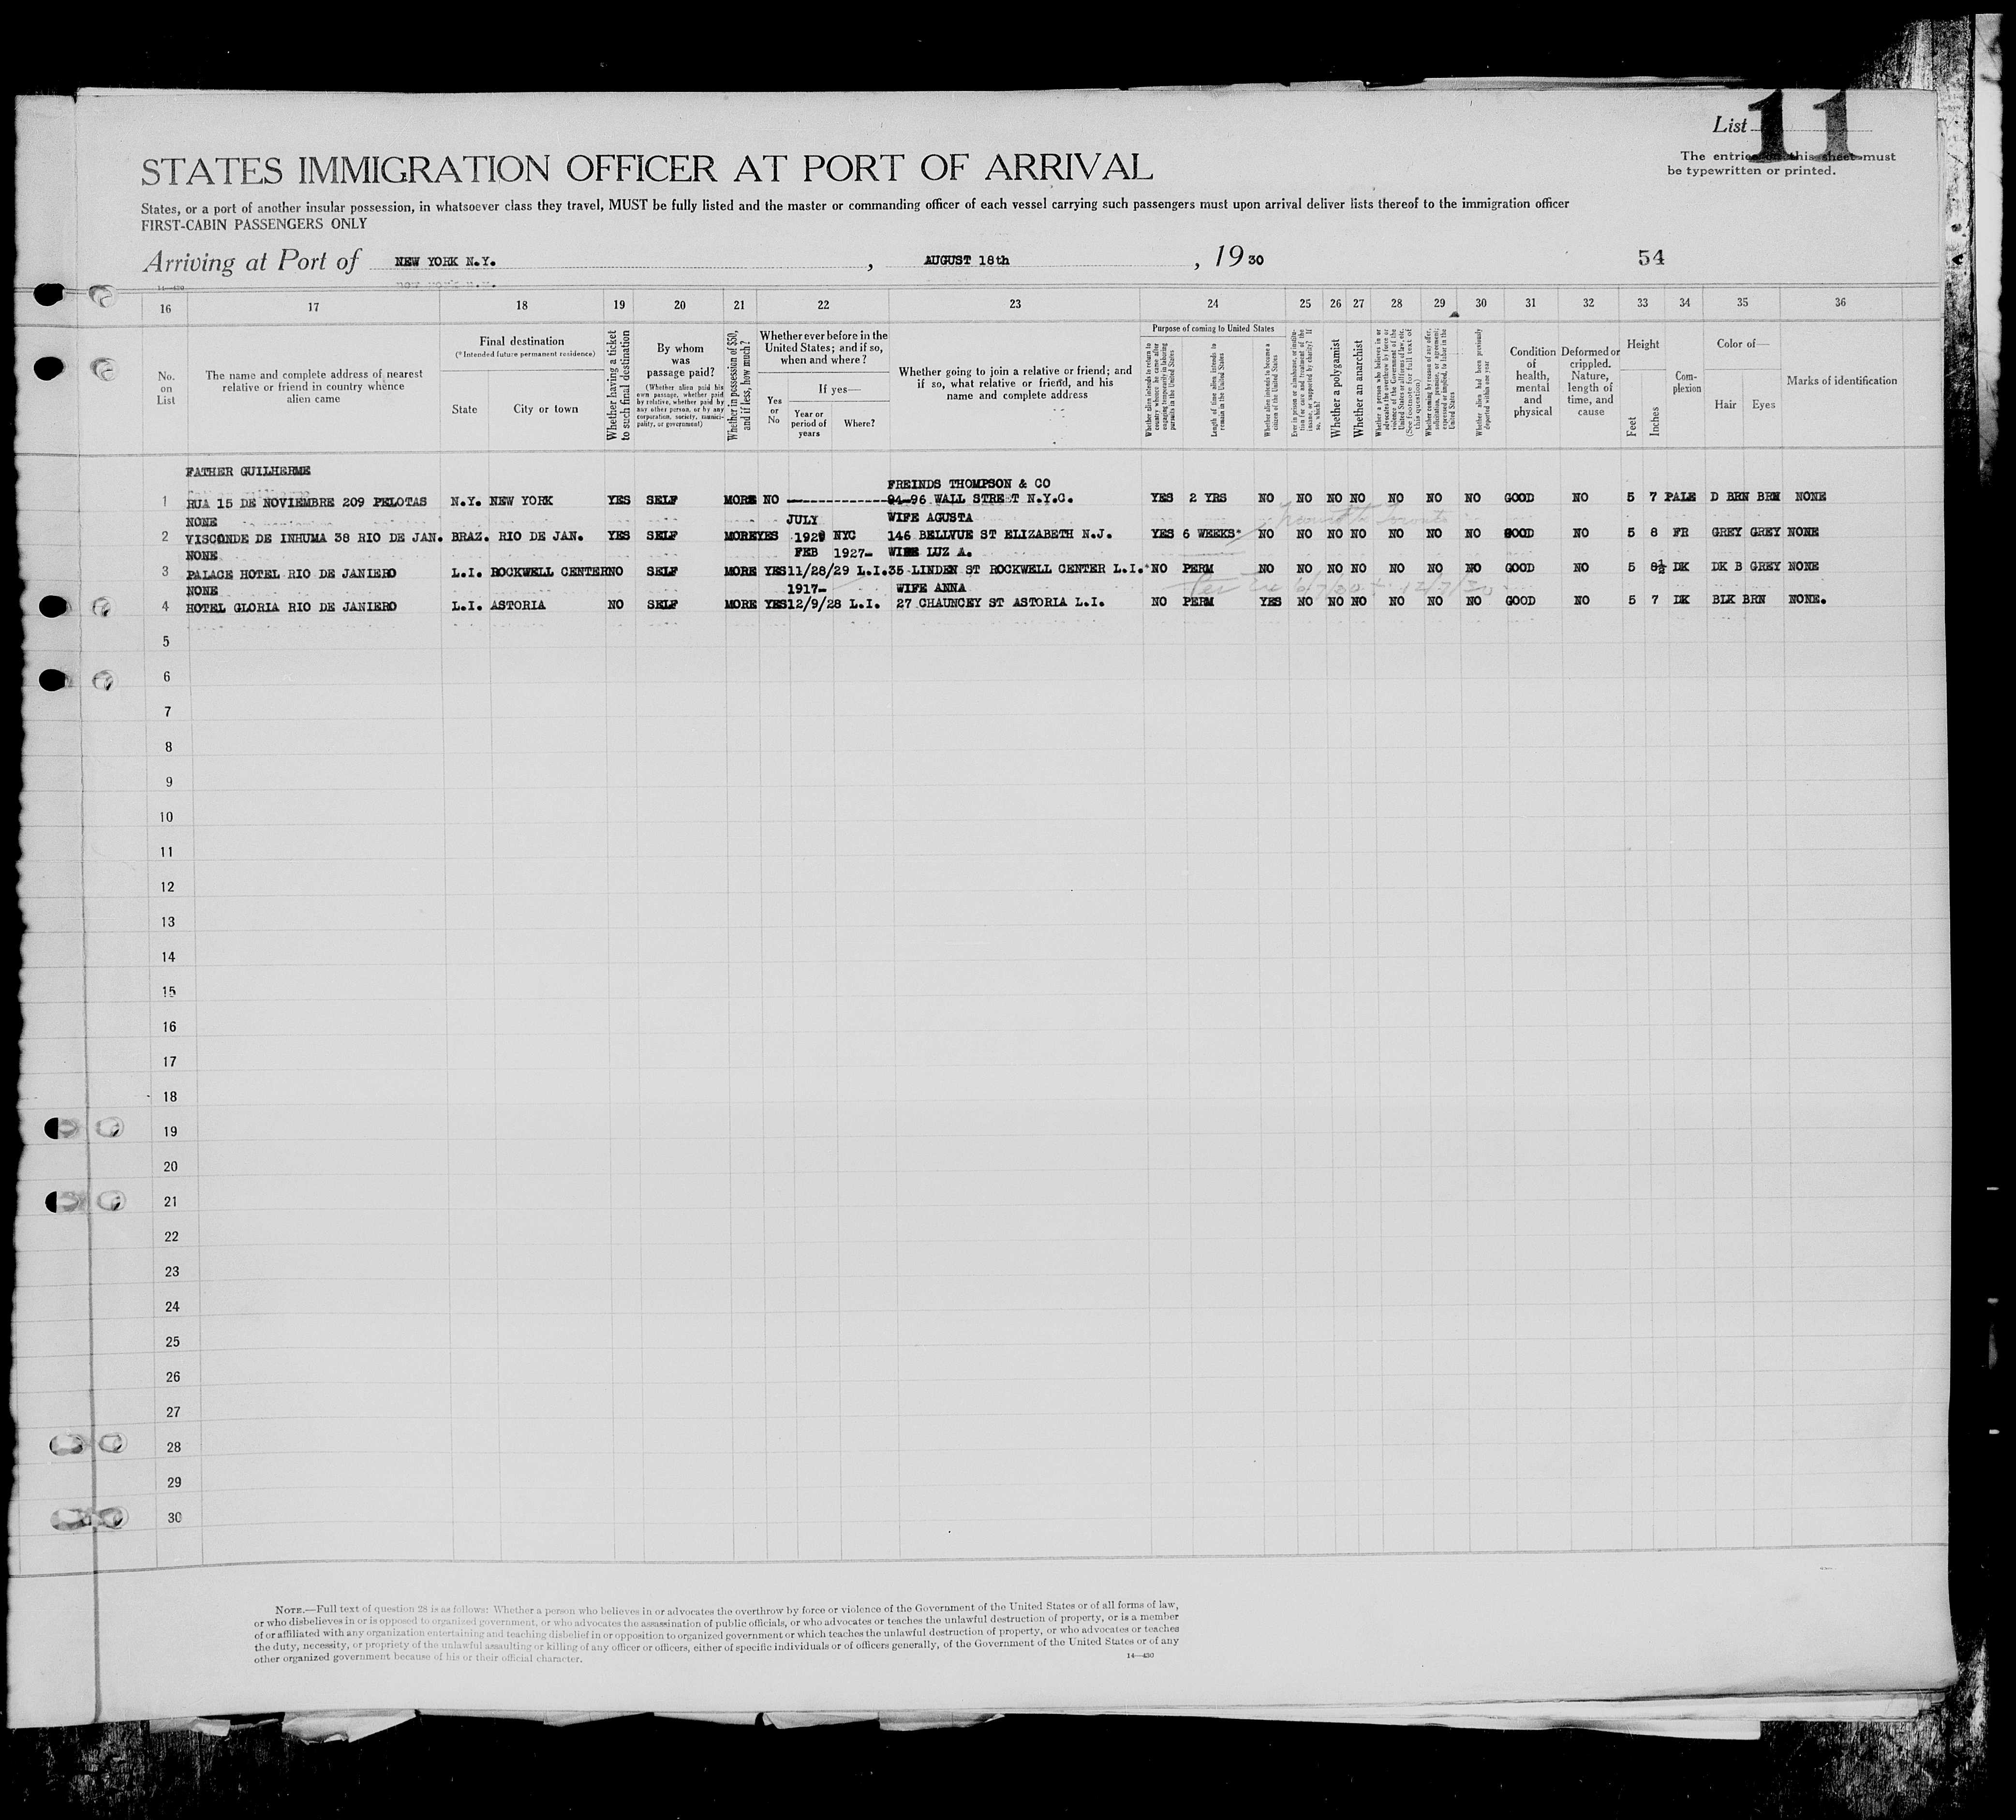 List 11
The entries on this sheet must
be typewritten or printed.
STATES IMMIGRATION OFFICER AT PORT OF ARRIVAL
States, or a port of another insular possession, in whatsoever class they travel, MUST be fully listed and the master or commanding officer of each vessel carrying such passengers must upon arrival deliver lists thereof to the immigration officer
FIRST-CABIN PASSENGERS ONLY
Arriving at Port of NEW YORK N.Y. , AUGUST 18th , 1930 54
14—430
16 17 18 19 20 21 22 23 24 25 26 27 28 29 30 31 32 33 34 35 36
No.
on
List
The name and complete address of nearest
relative or friend in country whence
alien came
Final destination
(*Intended future permanent residence)
State
City or town
Whether having a ticket
to such final destination
By whom
was
passage paid?
(Whether alien paid his
own passage, whether paid
by relative, whether paid by
any other person, or by any
corporation, society, munici-
pality, or government)
Whether in possession of $50,
and if less, how much?
Whether ever before in the
United States; and if so,
when and where?
Yes
or
No
If yes—
Year or
period of
years
Where?
Whether going to join a relative or friend; and
if so, what relative or friend, and his
name and complete address
Purpose of coming to United States
Whether alien intends to return to
country whence he came after
engaging temporarily in laboring
pursuits in the United States
Length of time alien intends to
remain in the United States
Whether alien intends to become a
citizen of the United States
Ever in prison or almshouse, or institu-
tion for care and treatment of the
insane, or supported by charity? If
so, which?
Whether a polygamist
Whether an anarchist
Whether a person who believes in or
advocates the overthrow by force or
violence of the Government of the
United States or all forms of law, etc.
(See footnote for full text of
this question)
Whether coming by reason of any offer,
solicitation, promise, or agreement,
expressed or implied, to labor in the
United States
Whether alien had been previously
deported within one year
Condition
of
health,
mental
and
physical
Deformed or
crippled.
Nature,
length of
time, and
cause
Height
Feet
Inches
Com-
plexion
Color of—
Hair
Eyes
Marks of identification
FATHER GUILHERME FREINDS THOMPSON & CO
1 RUA 15 DE NOVIEMBRE 209 PELOTAS N.Y. NEW YORK YES SELF MORE NO -------------- 94-96 WALL STREET N.Y.C. YES 2 YRS NO NO NO NO NO NO NO GOOD NO 5 7 PALE D BRN BRN NONE
NONE JULY WIFE AGUSTA
2 VISCONDE DE INHUMA 38 RIO DE JAN. BRAZ. RIO DE JAN. YES SELF MORE YES 1929 NYC 146 BELLVUE ST ELIZABETH N.J. YES 6 WEEKS NO NO NO NO NO NO NO GOOD NO 5 8 FR GREY GREY NONE
NONE FEB 1927- WIFE LUZ A.
3 PALACE HOTEL RIO DE JANIERO L.I. ROCKWELL CENTER NO SELF MORE YES 11/28/29 L.I. 35 LINDEN ST ROCKWELL CENTER L.I. NO PERM NO NO NO NO NO NO NO GOOD NO 5 8½ DK DK B GREY NONE
NONE 1917- WIFE ANNA
4 HOTEL GLORIA RIO DE JANIERO L.I. ASTORIA NO SELF MORE YES 12/9/28 L.I. 27 CHAUNCEY ST ASTORIA L.I. NO PERM YES NO NO NO NO NO NO GOOD NO 5 7 DK BLK BRN NONE.
5
6
7
8
9
10
11
12
13
14
15
16
17
18
19
20
21
22
23
24
25
26
27
28
29
30
NOTE.—Full text of question 28 is as follows: Whether a person who believes in or advocates the overthrow by force or violence of the Government of the United States or of all forms of law,
or who disbelieves in or is opposed to organized government, or who advocates the assassination of public officials, or who advocates or teaches the unlawful destruction of property, or is a member
of or affiliated with any organization entertaining and teaching disbelief in or opposition to organized government or which teaches the unlawful destruction of property, or who advocates or teaches
the duty, necessity, or propriety of the unlawful assaulting or killing of any officer or officers, either of specific individuals or of officers generally, of the Government of the United States or of any
other organized government because of his or their official character.
14—430